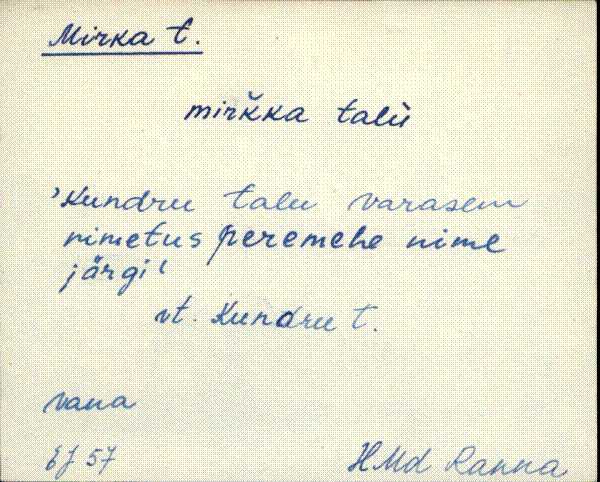 Mirka t.
mirǩka talu̇
'Kundru talu varasem
nimetus peremehe nime
järgi'
vt. Kundru t.
vana
EJ 57 HMd Ranna